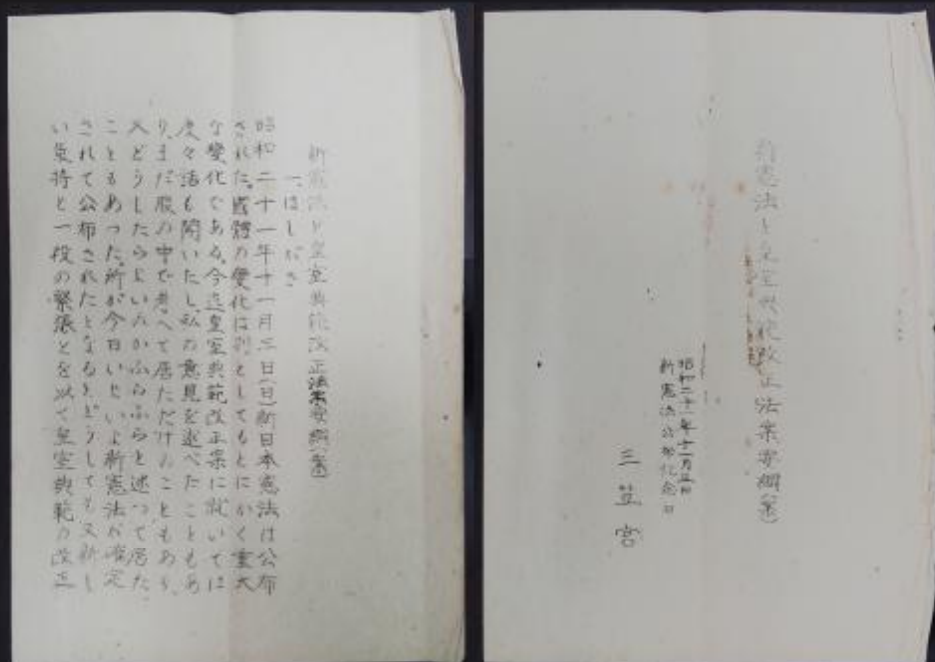 新憲法と皇室典範改正法案要綱(案)
昭和二十一年十一月三日
新憲法公布記念日
三笠宮
新憲法と皇室典範改正法案要綱(案)
一、はしがき
昭和二十一年十一月三日(日)新日本憲法は公布
された。國體の變化は別としてもとにかく重大
な變化である。今迄皇室典範改正案に就いては
度々話も聞いたし、私の意見を述べたこともあ
り、まだ腹の中で考へて居ただけのこともあり、
又どうしたらよいのかふらふらと迷つて居た
こともあつた。所が今日いよいよ新憲法が確定
されて公布されたとなるとどうしても又新し
い気持と一段の緊張とを以て皇室典範の改正